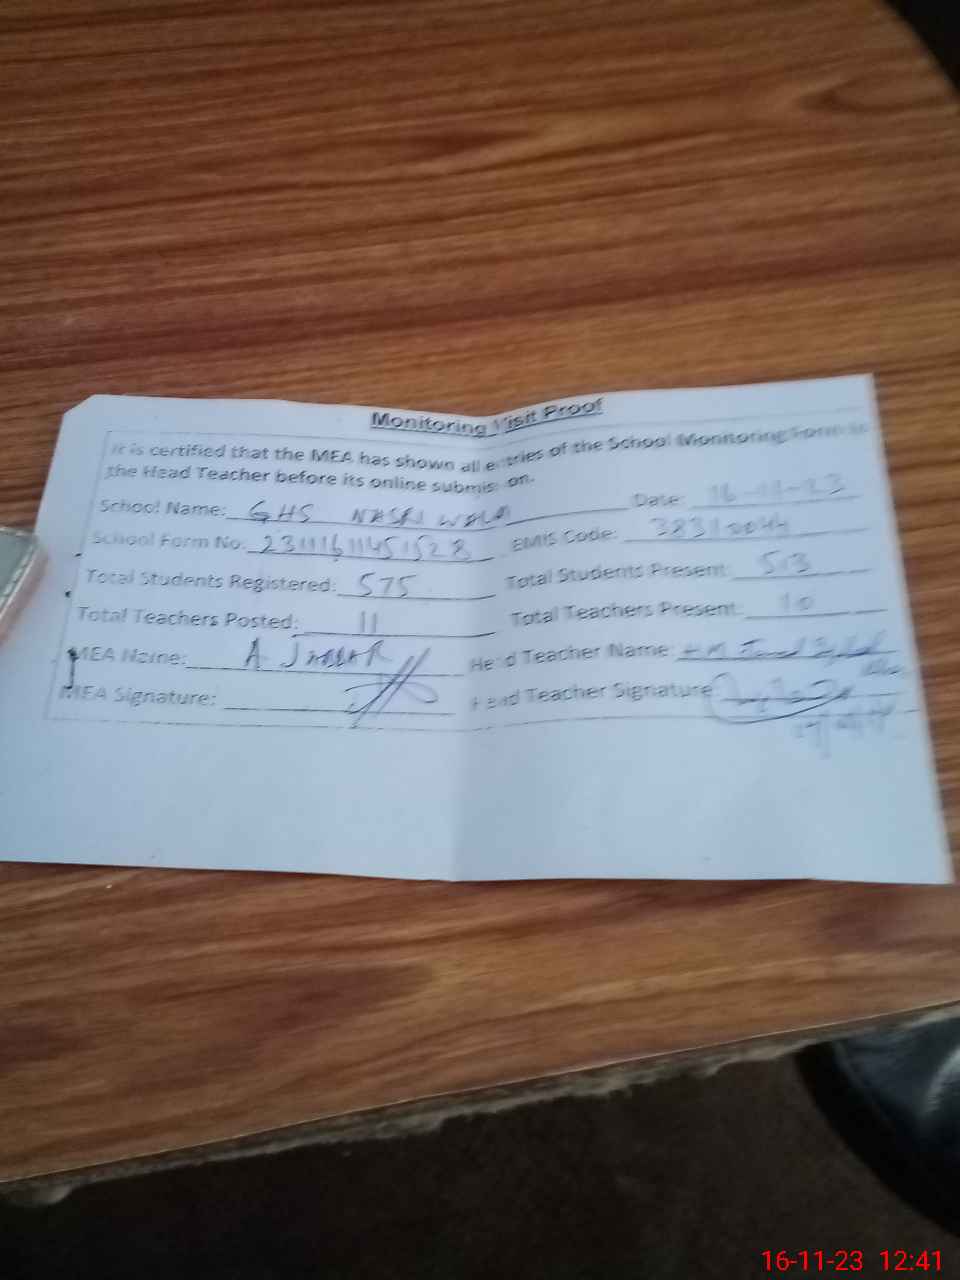 Monitoring Visit Proof
It is certified that the MEA has shown all entries of the School Monitoring Form to
the Head Teacher before its online submission.
School Name: GHS NASRI WALA Date: 16-11-23
School Form No: 23111611451528 EMIS Code: 38310044
Total Students Registered: 575 Total Students Present: 513
Total Teachers Posted: 11 Total Teachers Present: 10
MEA Name: A JABBAR Head Teacher Name:
MEA Signature: Head Teacher Signature:
16-11-23 12:41